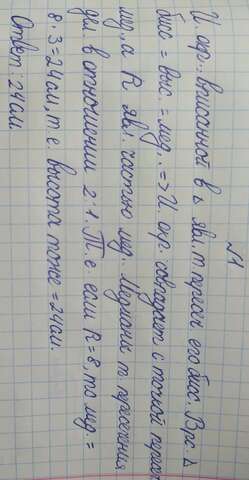 №1
Ц. окр. вписанной в Δ явл. т. пересеч. его бисс. В р.с. Δ
бисс = выс. = мед. => Ц. окр. совпадает с точкой перес
мед, а R явл. частью мед. Медианы т. пересечения
дел в отношении 2:1. Т.е. если R = 8, то мед. =
8·3=24см, т.е. высота тоже = 24см.
Ответ: 24см.